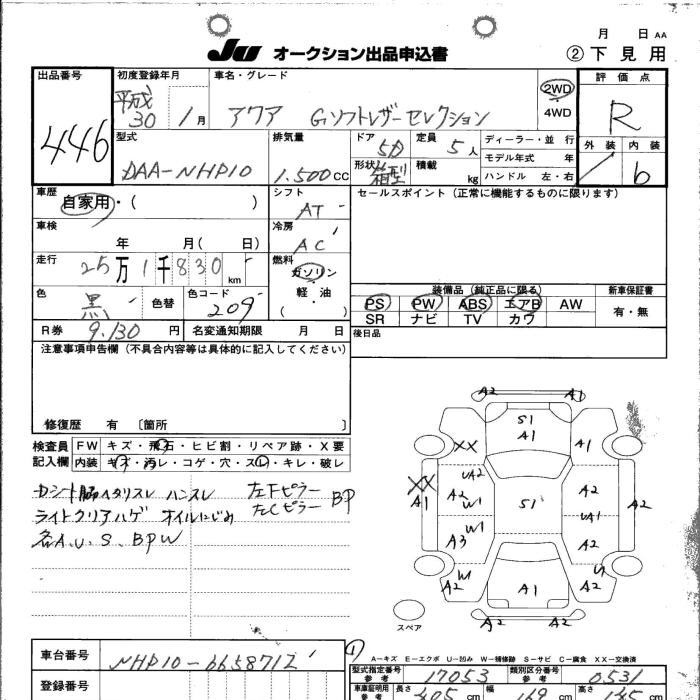 月 日 AA
JU オークション出品申込書
② 下見用
出品番号 初度登録年月 車名・グレード 評価点
446
平成30 1月
アクア Gソフトレザーセレクション
2WD
4WD
R
外装 内装
b
型式 排気量 ドア 定員 ディーラー・並 行
DAA-NHP10 1.500cc 5D 5人
モデル年式 年
形状 箱型 積載 kg ハンドル 左・右
車歴 自家用・( ) シフト AT
セールスポイント(正常に機能するものに限ります)
車検 年 月( 日) 冷房 AC
走行 25万1千830km 燃料 ガソリン
軽・油
( ・ )
色 黒 色替 色コード 209
装備品(純正品に限る) 新車保証書
PS PW ABS エアB AW 有・無
SR ナビ TV カワ
R券 9.130円 名変通知期限 月 日 後日品
注意事項申告欄(不具合内容等は具体的に記入してください)
修復歴 有 [箇所 ]
検査員 FW キズ・飛石・ヒビ割・リペア跡・X要
記入欄 内装 キズ・汚レ・コゲ・穴・スレ・キレ・破レ
ハンスレ 左Fピラー
ライトクリアハゲ オイルにじみ 左Cピラー BP
各A.U.S.BPW
A2 A1
S1
A1
XX A1
XX A1
UA2 A2 W1
S1
A2 A2
UA1
A3 W1 A2
W A2 A1 U A2
A2 A2
スペア
A-キズ E-エクボ U-凹み W-補修跡 S-サビ C-腐食 XX-交換済
車台番号 NHP10-6658712
登録番号
型式指定番号 参考 17053 類別区分番号 参考 0531
車庫証明用 参考 長さ 405 cm 幅 169 cm 高さ 145 cm